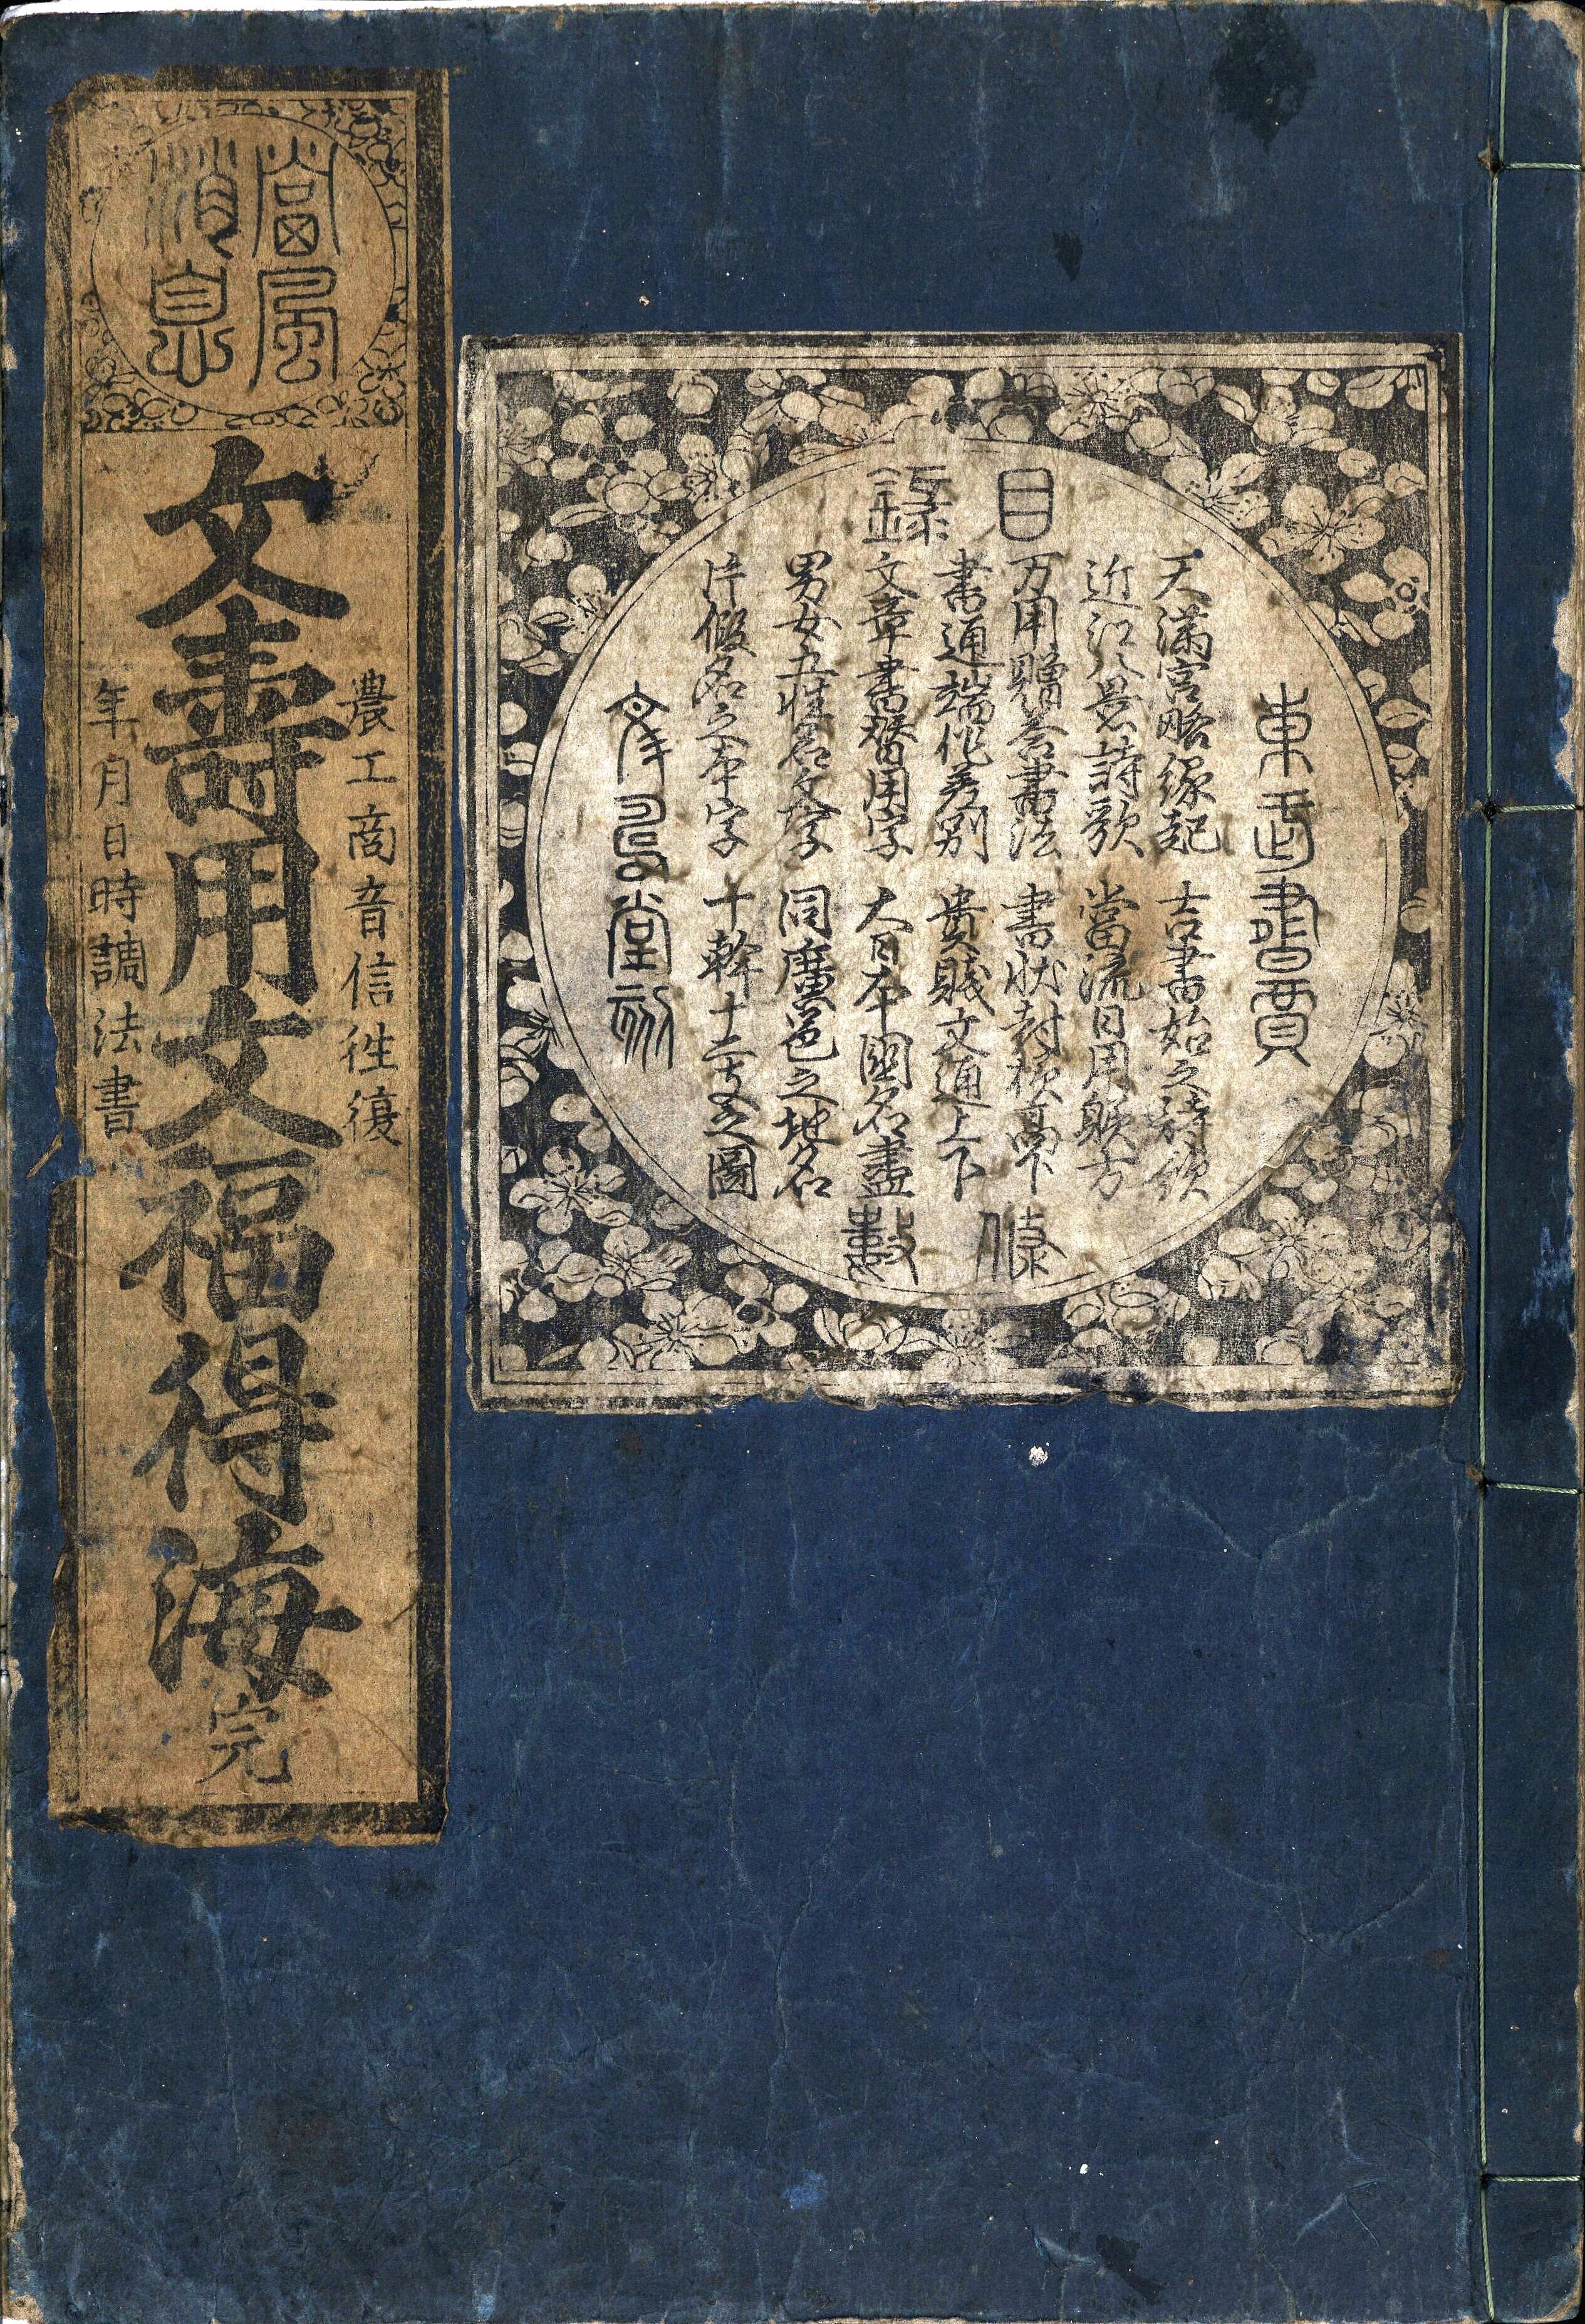 當風
消息
農工商音信往復
文壽用文福得海 完
年月日時調法書
東武書賈
目録
天満宮略縁起 吉書始之詩歌
近江八景詩歌 當流日用躾方
万用贈答書法 書状封様高下
書通端作差別 貴賎文通上下
文章書替用字 大日本國名盡
男女五性名乄字 同麿邑之地名
片假名之本字 十幹十二支之圖
條數
堂